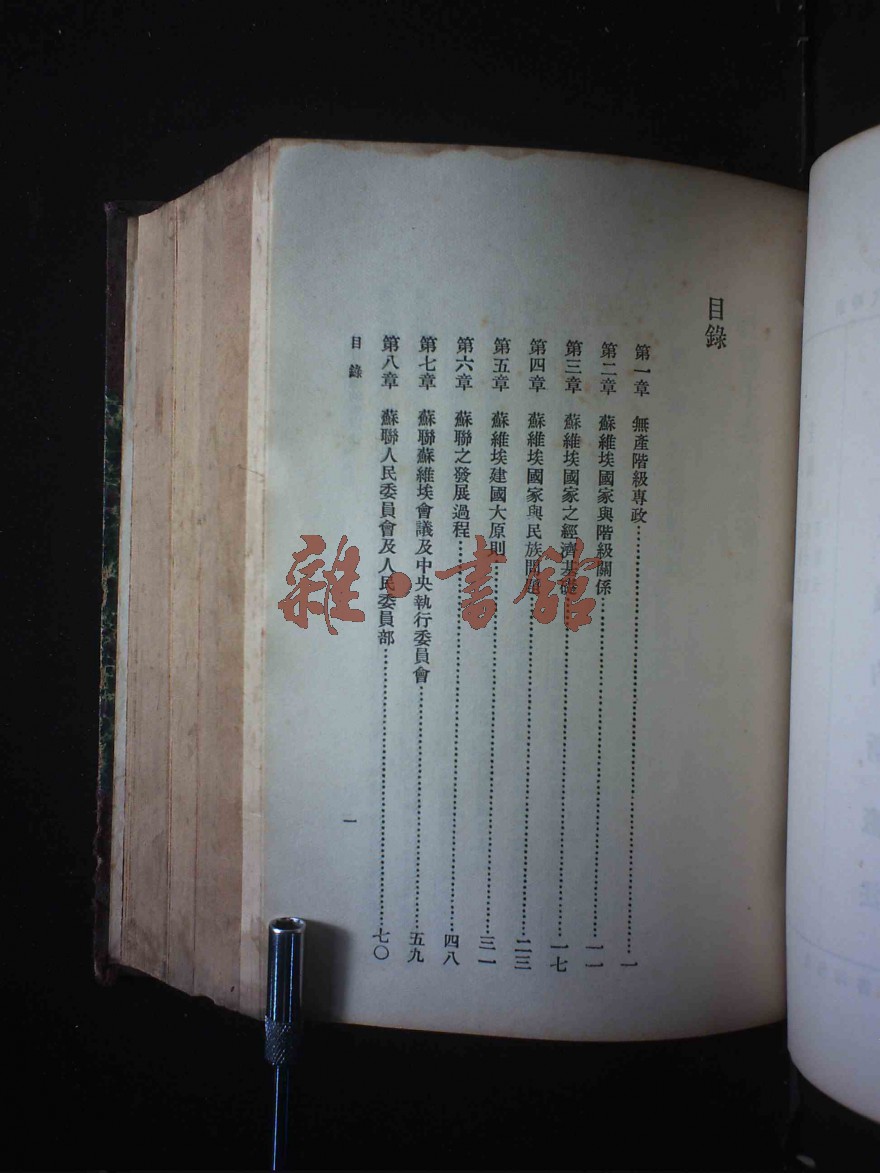 目錄
第一章　無產階級專政……一
第二章　蘇維埃國家與階級關係……一一
第三章　蘇維埃國家之經濟基礎……一七
第四章　蘇維埃國家與民族問題……二三
第五章　蘇維埃建國大原則……三一
第六章　蘇聯之發展過程……四八
第七章　蘇聯蘇維埃會議及中央執行委員會……五九
第八章　蘇聯人民委員會及人民委員部……七〇
目錄
一
雜·書館